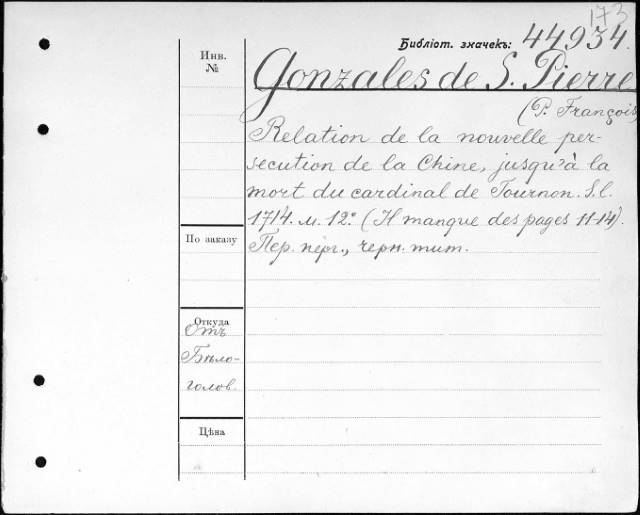 173
Библіот. значекъ: 44934.
Инв. №
Gonzales de S. Pierre
(P. François)
Relation de la nouvelle per-
secution de la Chine, jusqu'à la
mort du cardinal de Tournon. S. l.
1714. м. 12° (Il manque des pages 11-14).
По заказу
Пер. перг., черн. тит.
Откуда
Отъ
Бѣло-
голов.
Цѣна